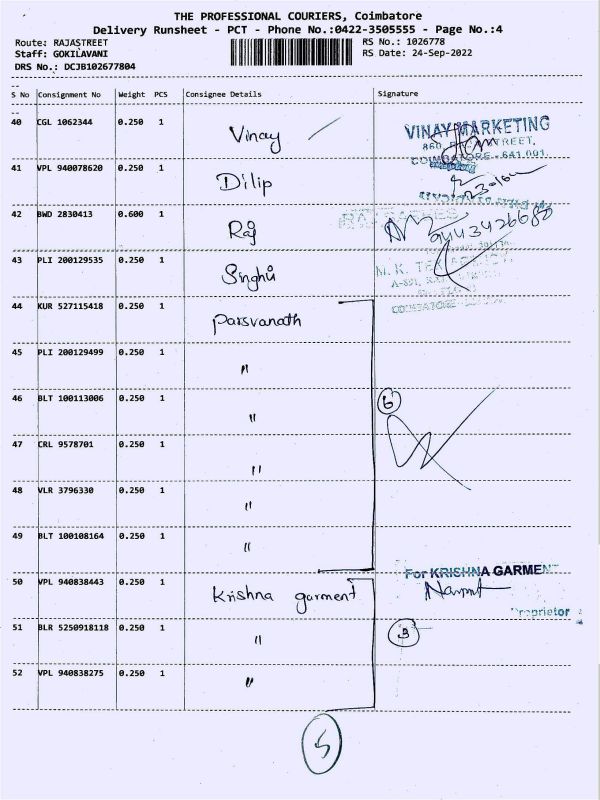 THE PROFESSIONAL COURIERS, Coimbatore
Delivery Runsheet - PCT - Phone No.:0422-3505555 - Page No.:4
Route: RAJASTREET RS No.: 1026778
Staff: GOKILAVANI RS Date: 24-Sep-2022
DRS No.: DCJB102677804
S No Consignment No Weight PCS Consignee Details Signature
40 CGL 1062344 0.250 1 Vinay VINAY MARKETING
STREET,
COIMBATORE - 641 001
41 VPL 940078620 0.250 1 Dilip
42 BWD 2830413 0.600 1 Raj 9443426688
43 PLI 200129535 0.250 1 Singhi M. K.
44 KUR 527115418 0.250 1 Parsvanath
45 PLI 200129499 0.250 1 "
46 BLT 100113006 0.250 1 " 6
47 CRL 9578701 0.250 1 "
48 VLR 3796330 0.250 1 "
49 BLT 100108164 0.250 1 "
50 VPL 940838443 0.250 1 Krishna garment For KRISHNA GARMENT
Proprietor
51 BLR 5250918118 0.250 1 " 3
52 VPL 940838275 0.250 1 "
5